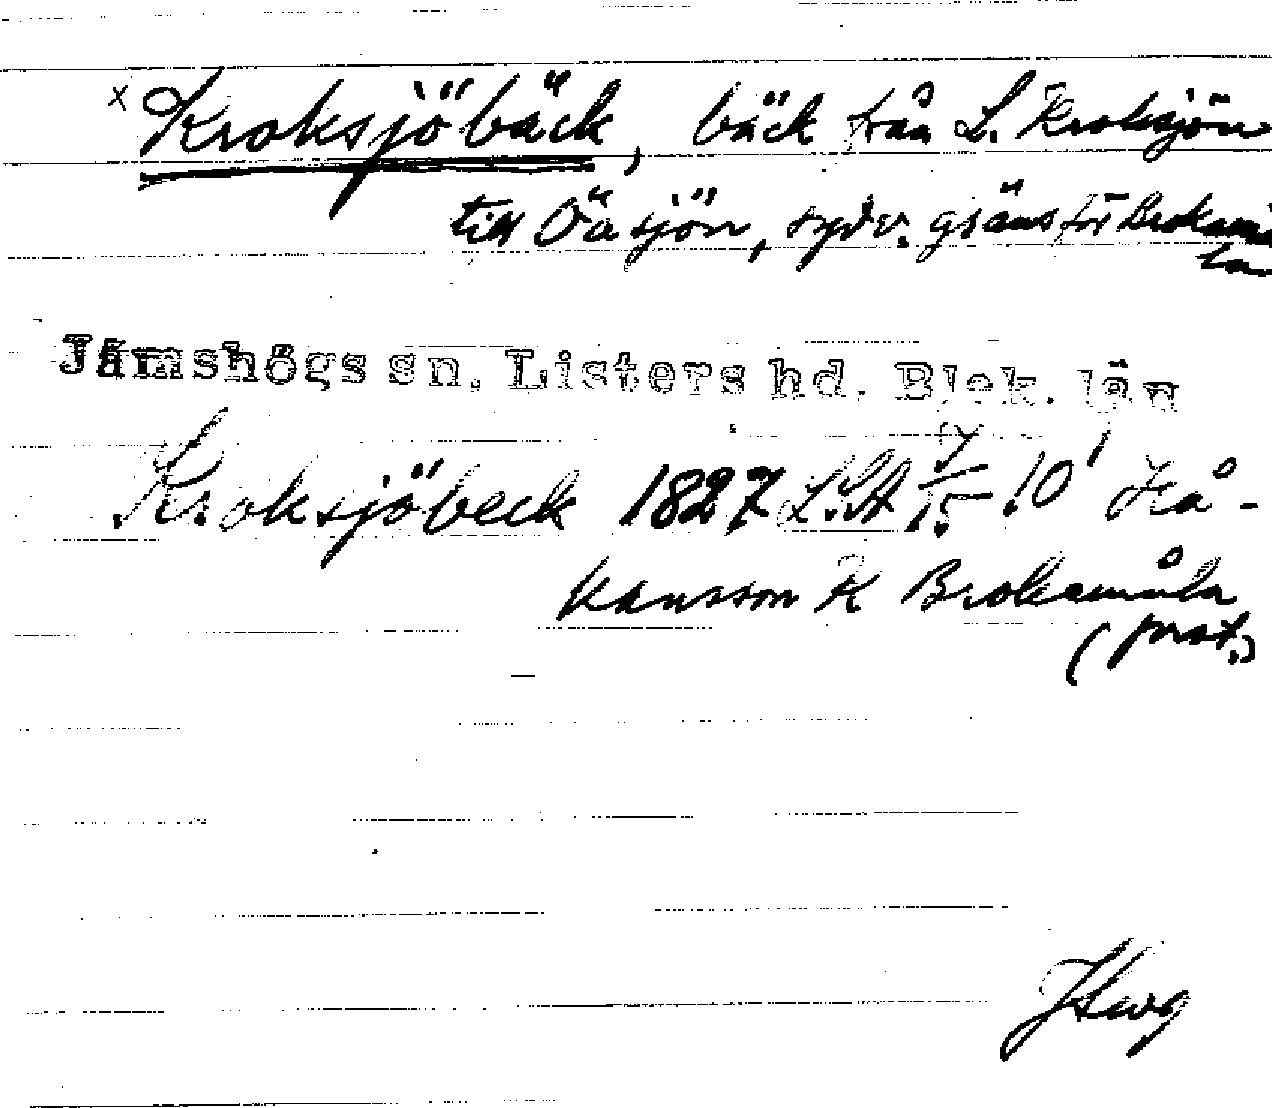 x Kroksjöbäck, bäck från L. Kroksjön
till Öasjön, sydv. gräns för Brokamå
la
Jämshögs sn. Listers hd. Blek. län
Kroksjöbeck 1827 LSA 10 Hå-
kansson K Brokamåla
(prot.)